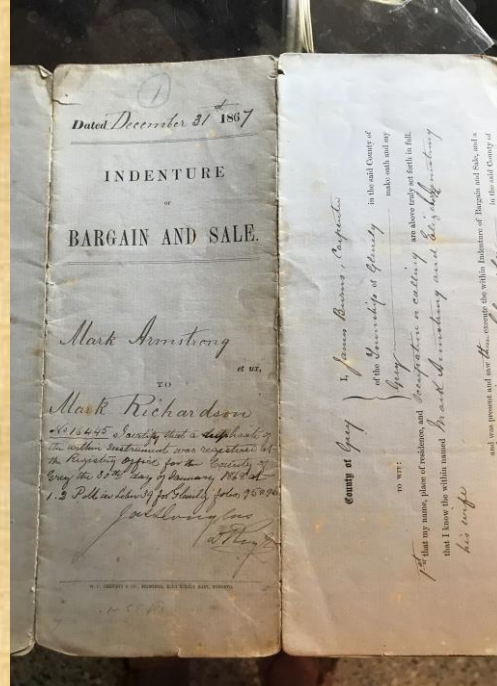 1
Dated December 31st 1867
INDENTURE
OF
BARGAIN AND SALE.
Mark Armstrong
et ux,
TO
Mark Richardson
No 16445 I certify that a duplicate of
the within Instrument was registered at
the Registry Office for the County of
Grey the 30th day of January 1868 at
1.2 P.M in Liber 39 for Glenelg folio, 95096
County of Grey
TO WIT:
I, James Burns, Carpenter
of the Township of Glenelg in the said County of
Grey make oath and say
1st that my name, place of residence, and occupation or calling are above truly set forth in full.
that I know the within named Mark Armstrong and Armstrong
his wife
and was present and saw them execute the within Indenture of Bargain and Sale, and a
in the said County of